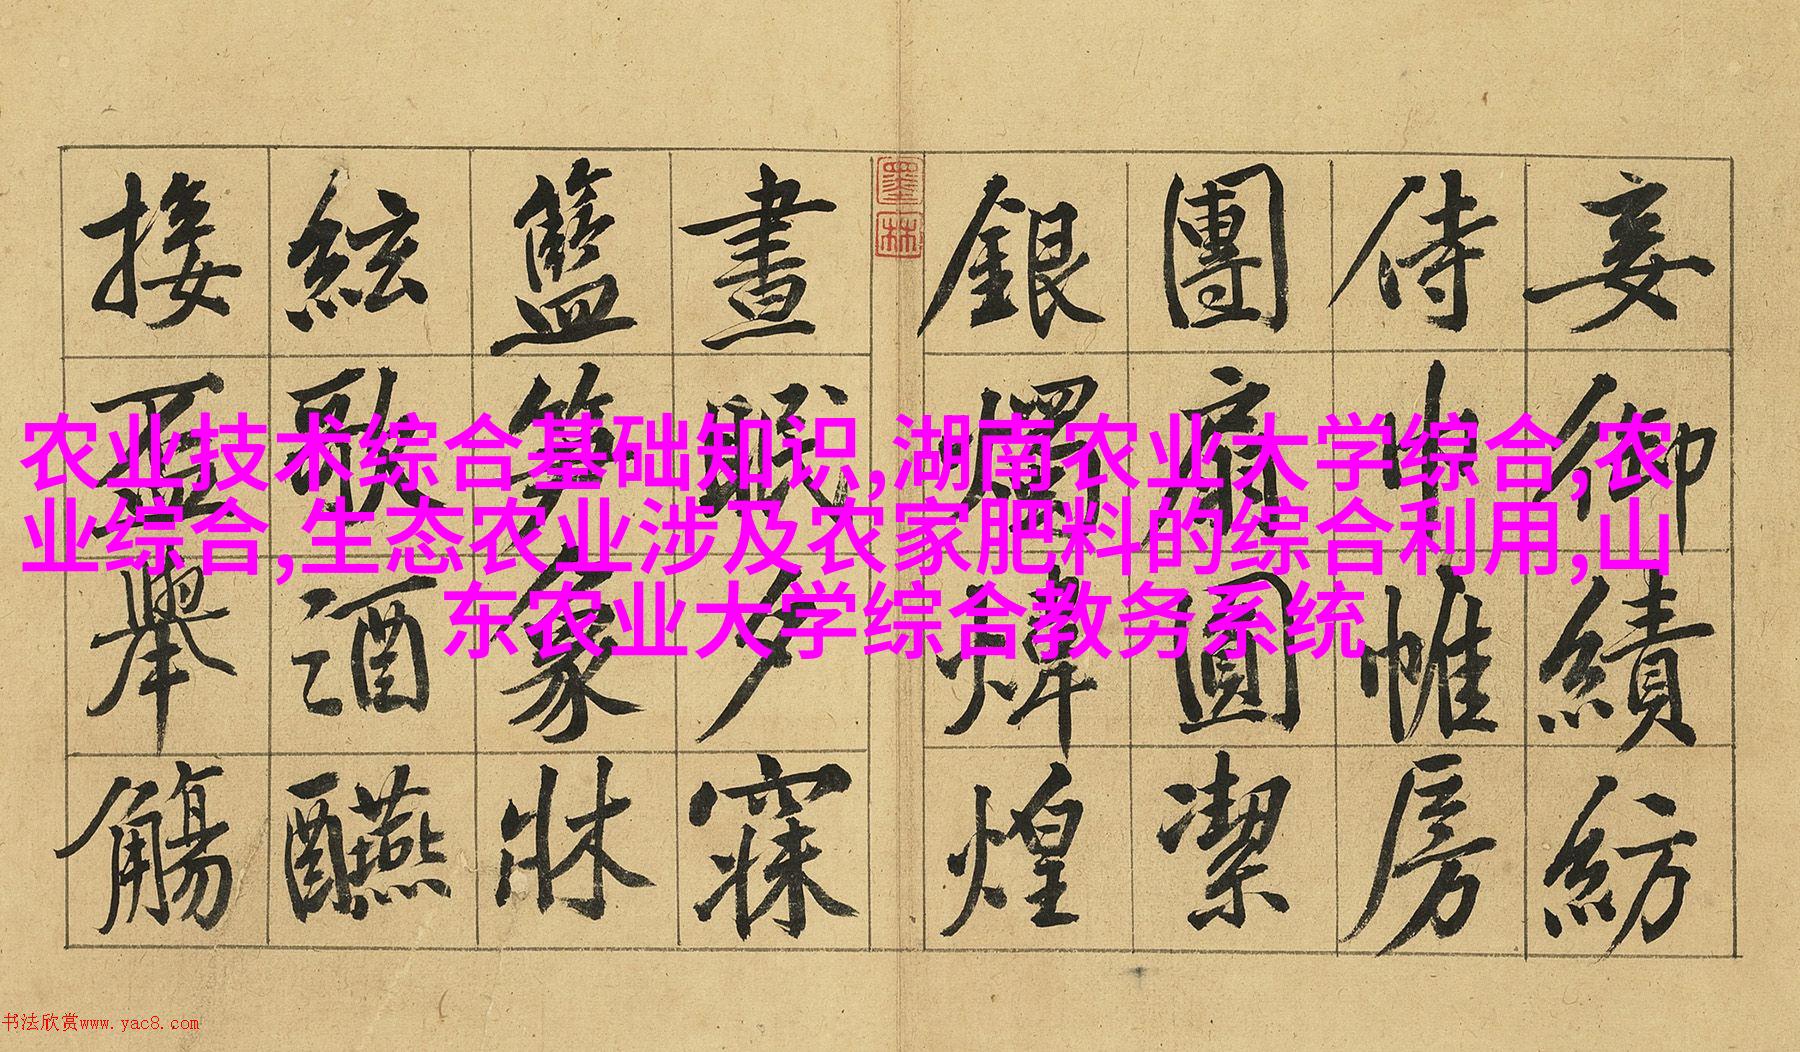 妾御績紡
侍巾帷房
團扇圓潔
銀燭煒煌
墨林
晝眠夕寐
籃筍象牀
絃歌酒醼
接盃舉觴
农业技术综合基础知识,湖南农业大学综合,农
业综合,生态农业涉及农家肥料的综合利用,山
东农业大学综合教务系统
书法欣赏www.yac8.com